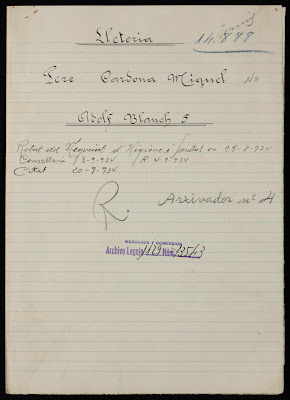 14.888
Lleteria
Pere Cardona Miquel No
Adolf Blanch 5
Rebut del Negociat d' Higiene i Sanitat en 29-8-934
Conselleria 3-9-934 R. 4-9-934
Citat 20-9-934
R.
Arxivador nº 4
MERCADOS Y COMERCIOS
Archivo Legajo 1129 Núm. 13543